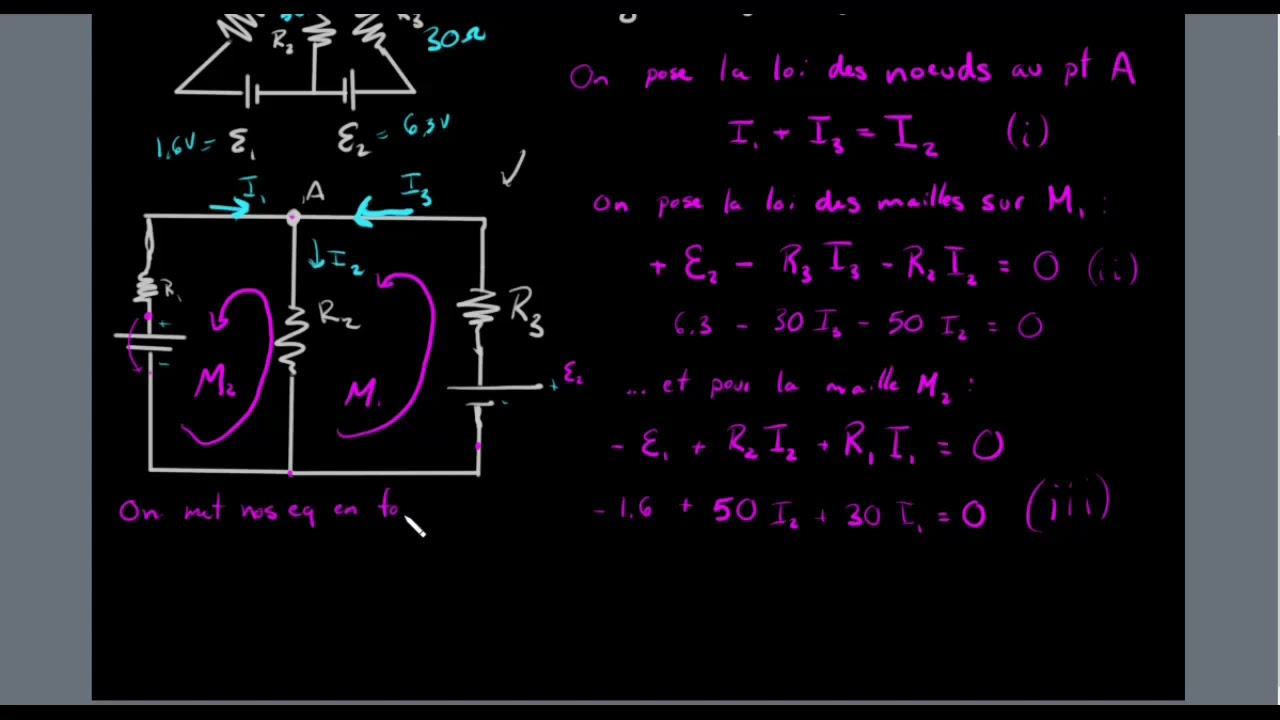 R₂
R₃
30Ω
1.6V = Ɛ₁
Ɛ₂ = 6.3V
I₁
A
I₃
I₂
R₁
+
-
R₂
R₃
M₂
M₁
+ Ɛ₂
-
On met nos eq en fo
On pose la loi des noeuds au pt A
I₁ + I₃ = I₂ (i)
On pose la loi des mailles sur M₁ :
+ Ɛ₂ - R₃ I₃ - R₂ I₂ = 0 (ii)
6.3 - 30 I₃ - 50 I₂ = 0
... et pour la maille M₂ :
- Ɛ₁ + R₂ I₂ + R₁ I₁ = 0
- 1.6 + 50 I₂ + 30 I₁ = 0 (iii)